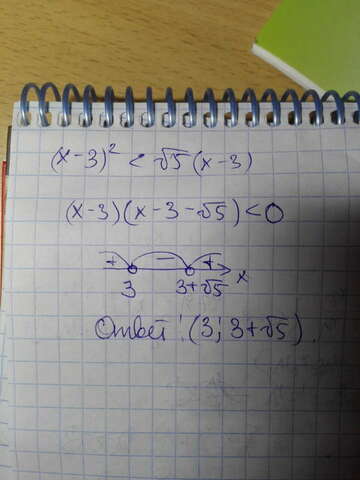 (x-3)² < √5(x-3)
(x-3)(x-3-√5)<0
+ − + x
3 3+√5
Ответ: (3; 3+√5).